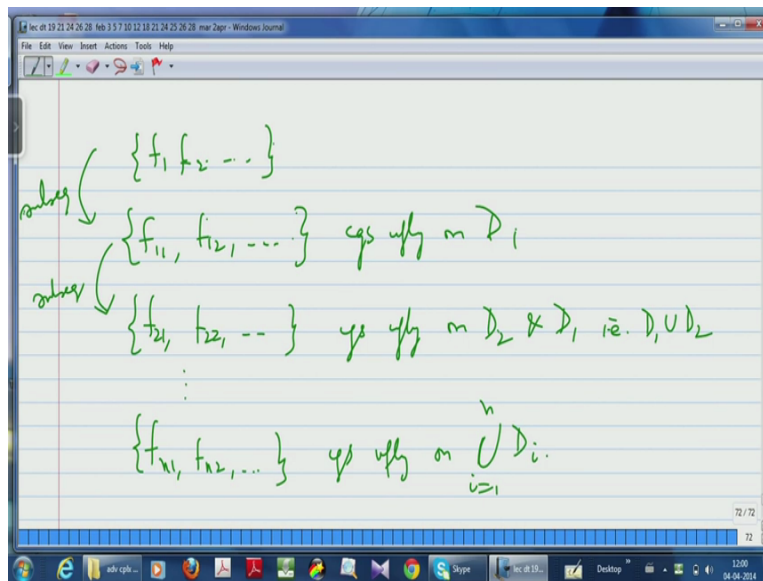 lec dt 19 21 24 26 28 feb 3 5 7 10 12 18 21 24 25 26 28 mar 2apr - Windows Journal
File Edit View Insert Actions Tools Help
{f₁ f₂ ... }
subseq
{f₁₁, f₁₂, ... } cgs ufly on D₁
subseq
{f₂₁, f₂₂, -- } cgs ufly on D₂ & D₁ i.e. D₁ ∪ D₂
⋮
{fₙ₁, fₙ₂, ... } cgs ufly on ⋃ᵢ₌₁ⁿ Dᵢ.
72 / 72
72
adv cplx ...
Skype
lec dt 19...
Desktop
12:00
04-04-2014